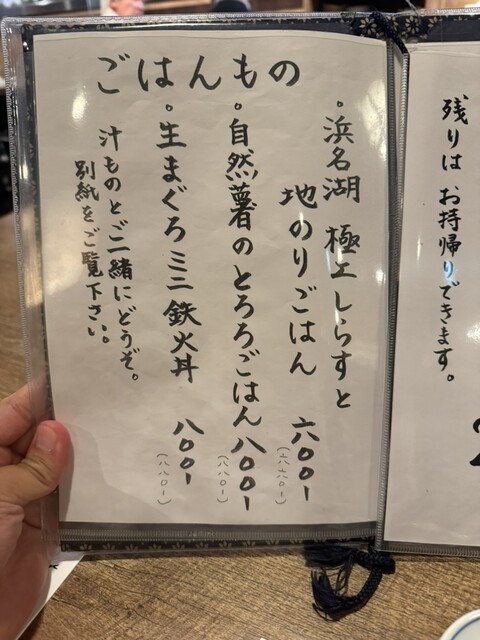 残りは お持帰りできます。
ごはんもの
。浜名湖 極上しらすと
地のりごはん 六〇〇ー
(六六〇ー)
。自然薯のとろろごはん 八〇〇ー
(八八〇ー)
。生まぐろミニ鉄火丼 八〇〇ー
(八八〇ー)
汁ものとご一緒にどうぞ。
別紙をご覧下さい。